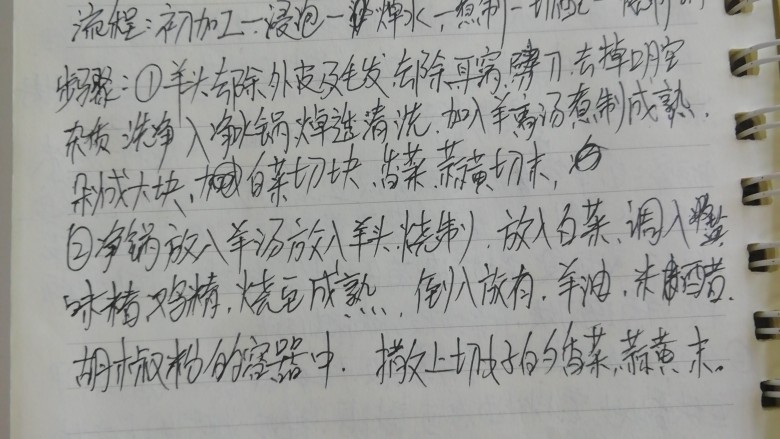 流程:初加工—浸泡—焯水—煮制—切配—
步骤:①羊头去除外皮及毛发,去除耳窝,劈刀,去掉口腔
杂质,洗净入净水锅,焯透清洗,加入羊骨汤煮制成熟,
剁成大块,白菜切块,香菜,蒜黄切末,
②净锅放入羊汤放入羊头,烧制,放入白菜,调入盐
味精,鸡精,烧至成熟,倒入放有,羊油,米醋,
胡椒粉的容器中,撒上切好的香菜,蒜黄末。